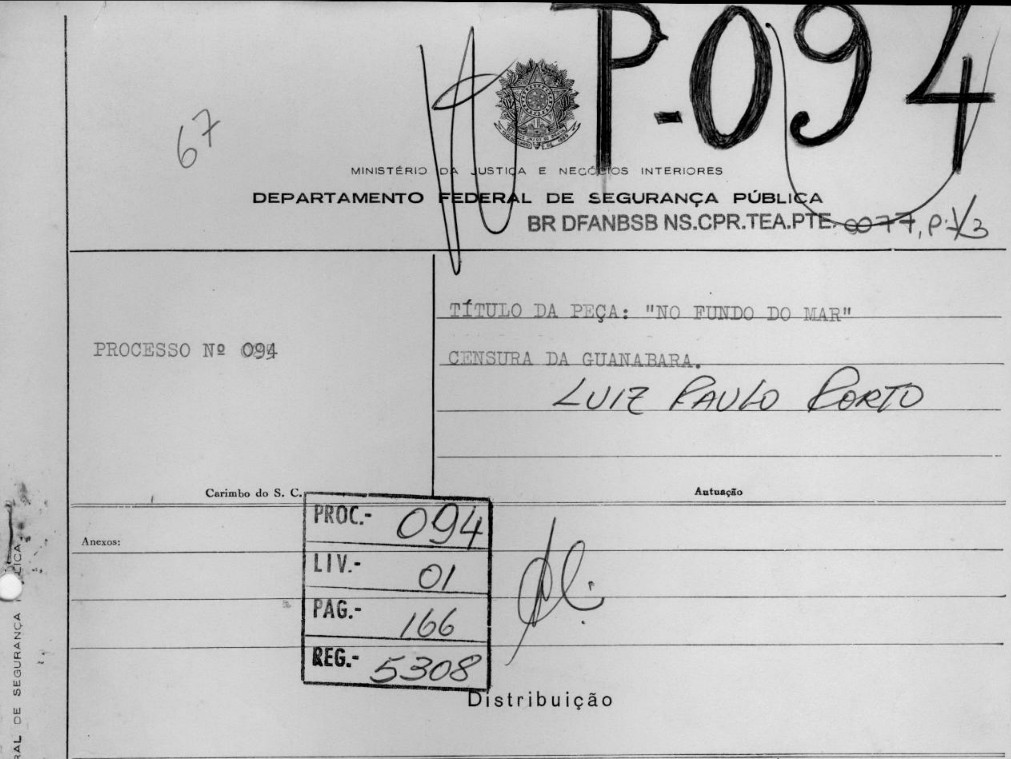 P-094
67
MINISTÉRIO DA JUSTIÇA E NEGÓCIOS INTERIORES
DEPARTAMENTO FEDERAL DE SEGURANÇA PÚBLICA
BR DFANBSB NS.CPR.TEA.PTE. 0077, P.1/3
TÍTULO DA PEÇA: "NO FUNDO DO MAR"
PROCESSO Nº 094
CENSURA DA GUANABARA.
LUIZ PAULO PORTO
Carimbo do S. C.
Autuação
Anexos:
PROC.- 094
LIV.- 01
PAG.- 166
REG.- 5308
Distribuição
RAL DE SEGURANÇA